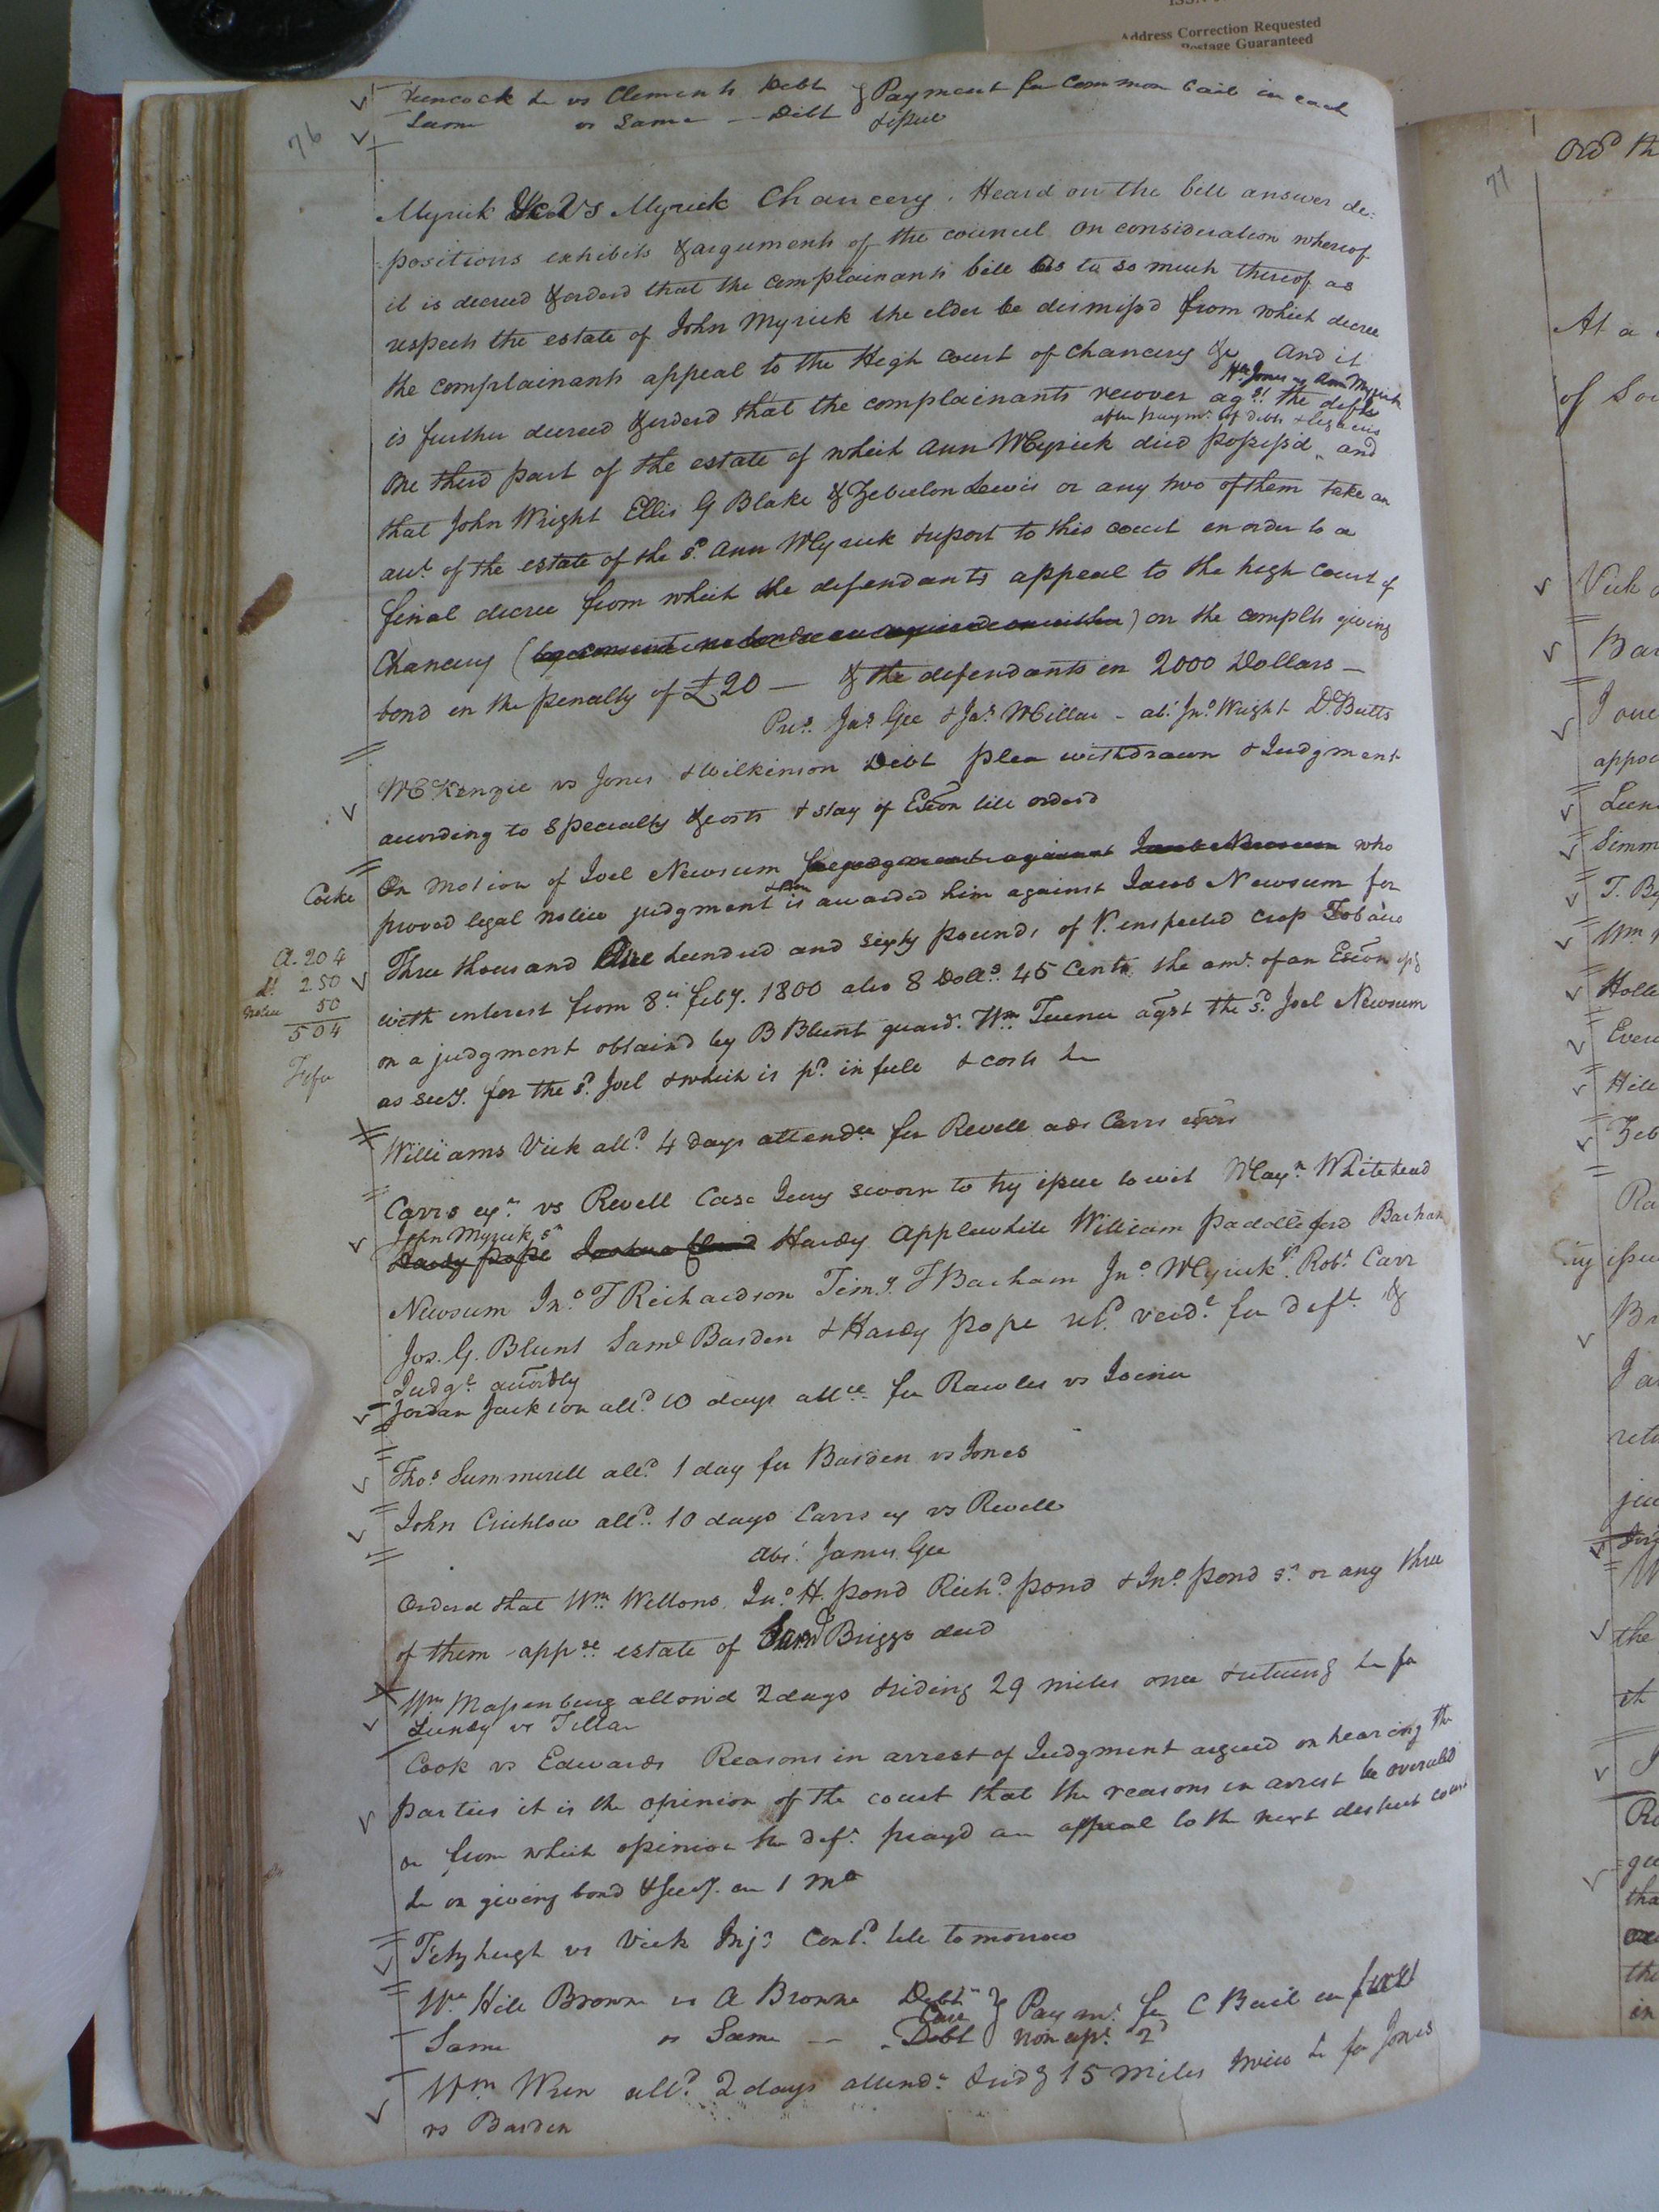 Address Correction Requested
Postage Guaranteed
76
Hancock &c vs Clements Debt } Payment for Common bail in each
Same vs Same — Debt & issue
Myrick &c Vs Myrick Chancery. Heard on the bill answer de:
positions exhibits & arguments of the councel On consideration whereof
it is decreed & orderd that the complainants bill as to so much thereof as
respects the estate of John Myrick the elder be dismissd from which decree
the complainants appeal to the High court of chancery &c And it
Hy. Jones & Ann Myrick
is further decreed & orderd that the complainants recover agst. the defts
after paymt. of debts & legacies
one third part of the estate of which Ann Myrick died possessd, and
that John Wright Ellis G Blake & Zebulon Lewis or any two of them take an
acct. of the estate of the sd. Ann Myrick & report to this court in order to a
final decree from which the defendants appeal to the high court of
Chancery ( ) on the complts giving
bond in the penalty of £20 — & the defendants in 2000 Dollars —
Pres. Jas. Gee & Jas. Millar - abt. Jno. Wright D. Butts
McKenzie vs Jones & Wilkinson Debt plea withdrawn & Judgment
according to specialty & costs & stay of Exon till orderd
Cocke On motion of Joel Newsum who
proved legal notice judgment is awarded him against Jacob Newsum for
A. 204
Three thousand five hundred and sixty pounds of P. inspected crop Tobacco
2.50
50
504
Fifa
with interest from 8th feby. 1800 also 8 Dolls. 45 Cents the amt. of an Exon
on a judgment obtaind by B Blunt guard. Wm. Turner agst the sd. Joel Newsum
as secy. for the sd. Joel & which is pd. in full & costs &c
Williams Vick alld. 4 days attendce for Revell ads Carrs exors
Carrs exr. vs Revell Case Jury sworn to try issue to wit May. Whitehead
John Myrick sr
Hardy pope Hardy Applewhite William Paddleford Barham
Newsum Jno. T Richardson Timy. T Barham Jno. Myrick jr. Robt. Carr
Jos. G. Blunt Saml Barden & Hardy pope retd. verdt. for deft. &
Judgt. accordly
Jordan Jackson alld. 10 days attce. for Rawles vs Joiner
Thos. Summerell alld. 1 day for Barden vs Jones
John Crichlow alld. 10 days Carrs ex vs Revell
Abs. James Gee
Orderd that Wm. Wellons Jno. H. pond Richd. pond & Jno. pond sr. or any three
of them appse. estate of Saml Briggs decd
Wm Massenburg allowd 2 days & riding 29 miles once & returng &c for
Lundy vs Tillar
Cook vs Edwards Reasons in arrest of Judgment argued on hearing the
parties it is the opinion of the court that the reasons in arrest be overuled
on from which opinion the deft. prayd an appeal to the next district court
&c on giving bond & secy. in 1 mo
Fitzhugh vs Vick Injn Contd. till tomorrow
Wm. Hill Browne vs A Browne Debt } Paymt. for C Bail in first
Case
Same vs Same — Debt } non apt. 2d
Wm Wren alld. 2 days attendce. & ridg 15 miles twice &c for Jones
vs Barden
77
Ordd th
At a
of Sou
Vick
Bar
appoi
Simm
T. By
Wm
Holle
Hill
Zeb
issue
the
in